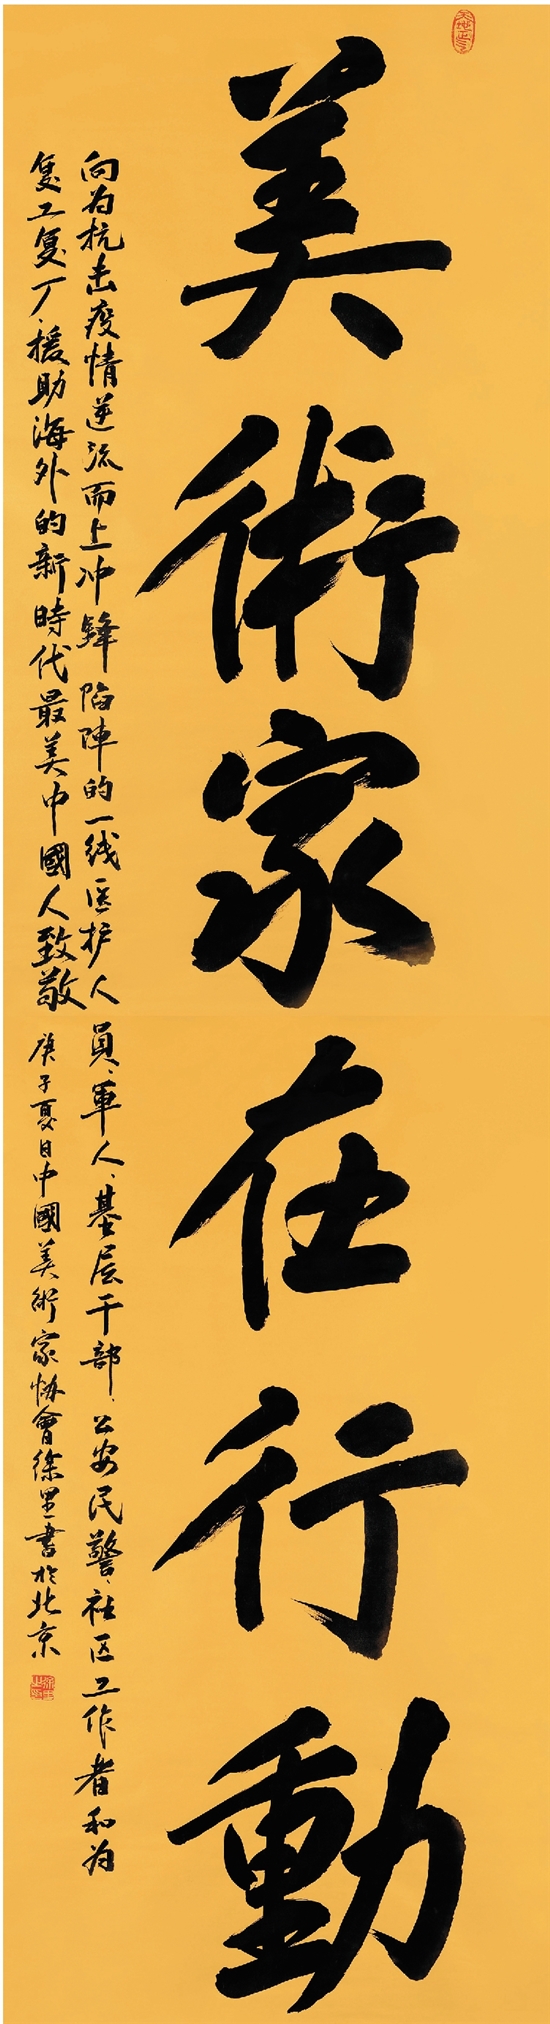 美術家在行動
向为抗击疫情逆流而上冲鋒陷陣的一线医护人員、軍人、基层干部、公安民警、社区工作者和为
复工复厂、援助海外的新時代最美中國人致敬
庚子夏日中國美術家协會徐里書於北京